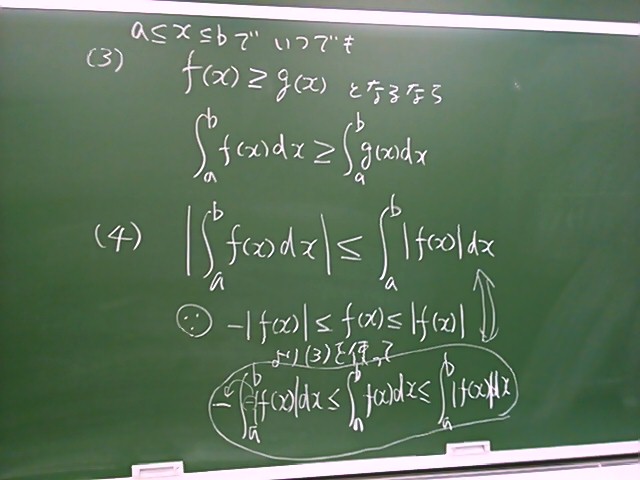 a≤x≤bで いつでも
(3) f(x) ≥ g(x) となるなら
∫_a^b f(x)dx ≥ ∫_a^b g(x)dx
(4) |∫_a^b f(x)dx| ≤ ∫_a^b |f(x)|dx
∵ -|f(x)| ≤ f(x) ≤ |f(x)|
より(3)を使って
-∫_a^b |f(x)|dx ≤ ∫_a^b f(x)dx ≤ ∫_a^b |f(x)|dx